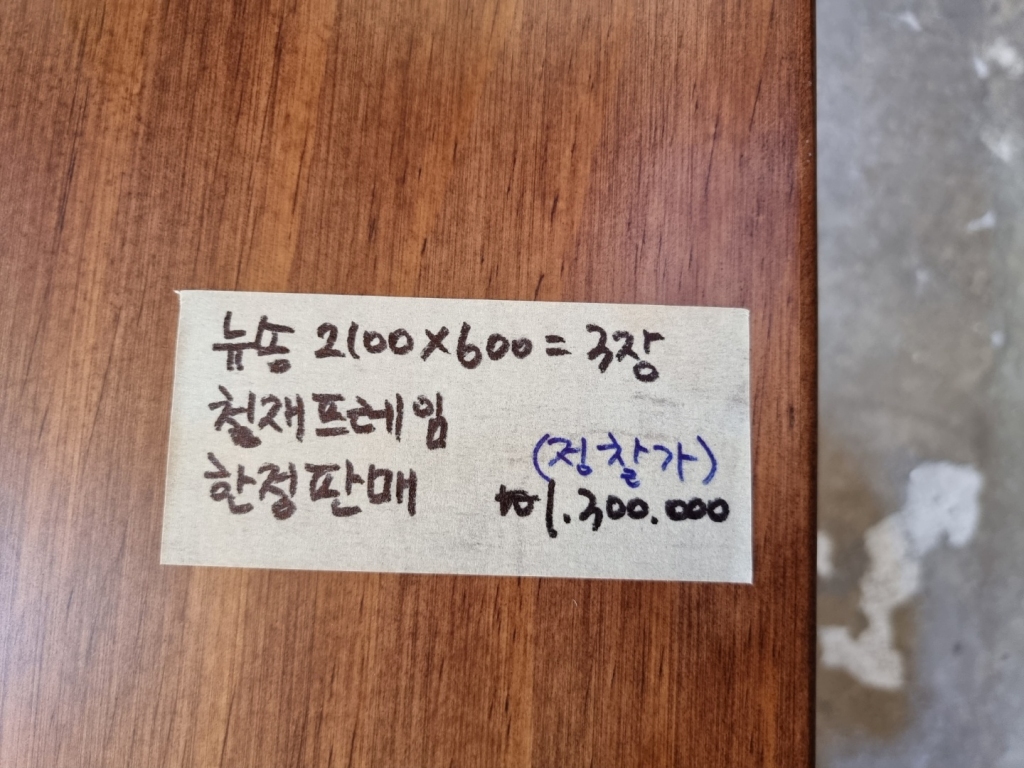 뉴송 2100×600 = 3장
철재프레임
한정판매
(정찰가)
₩1.300.000